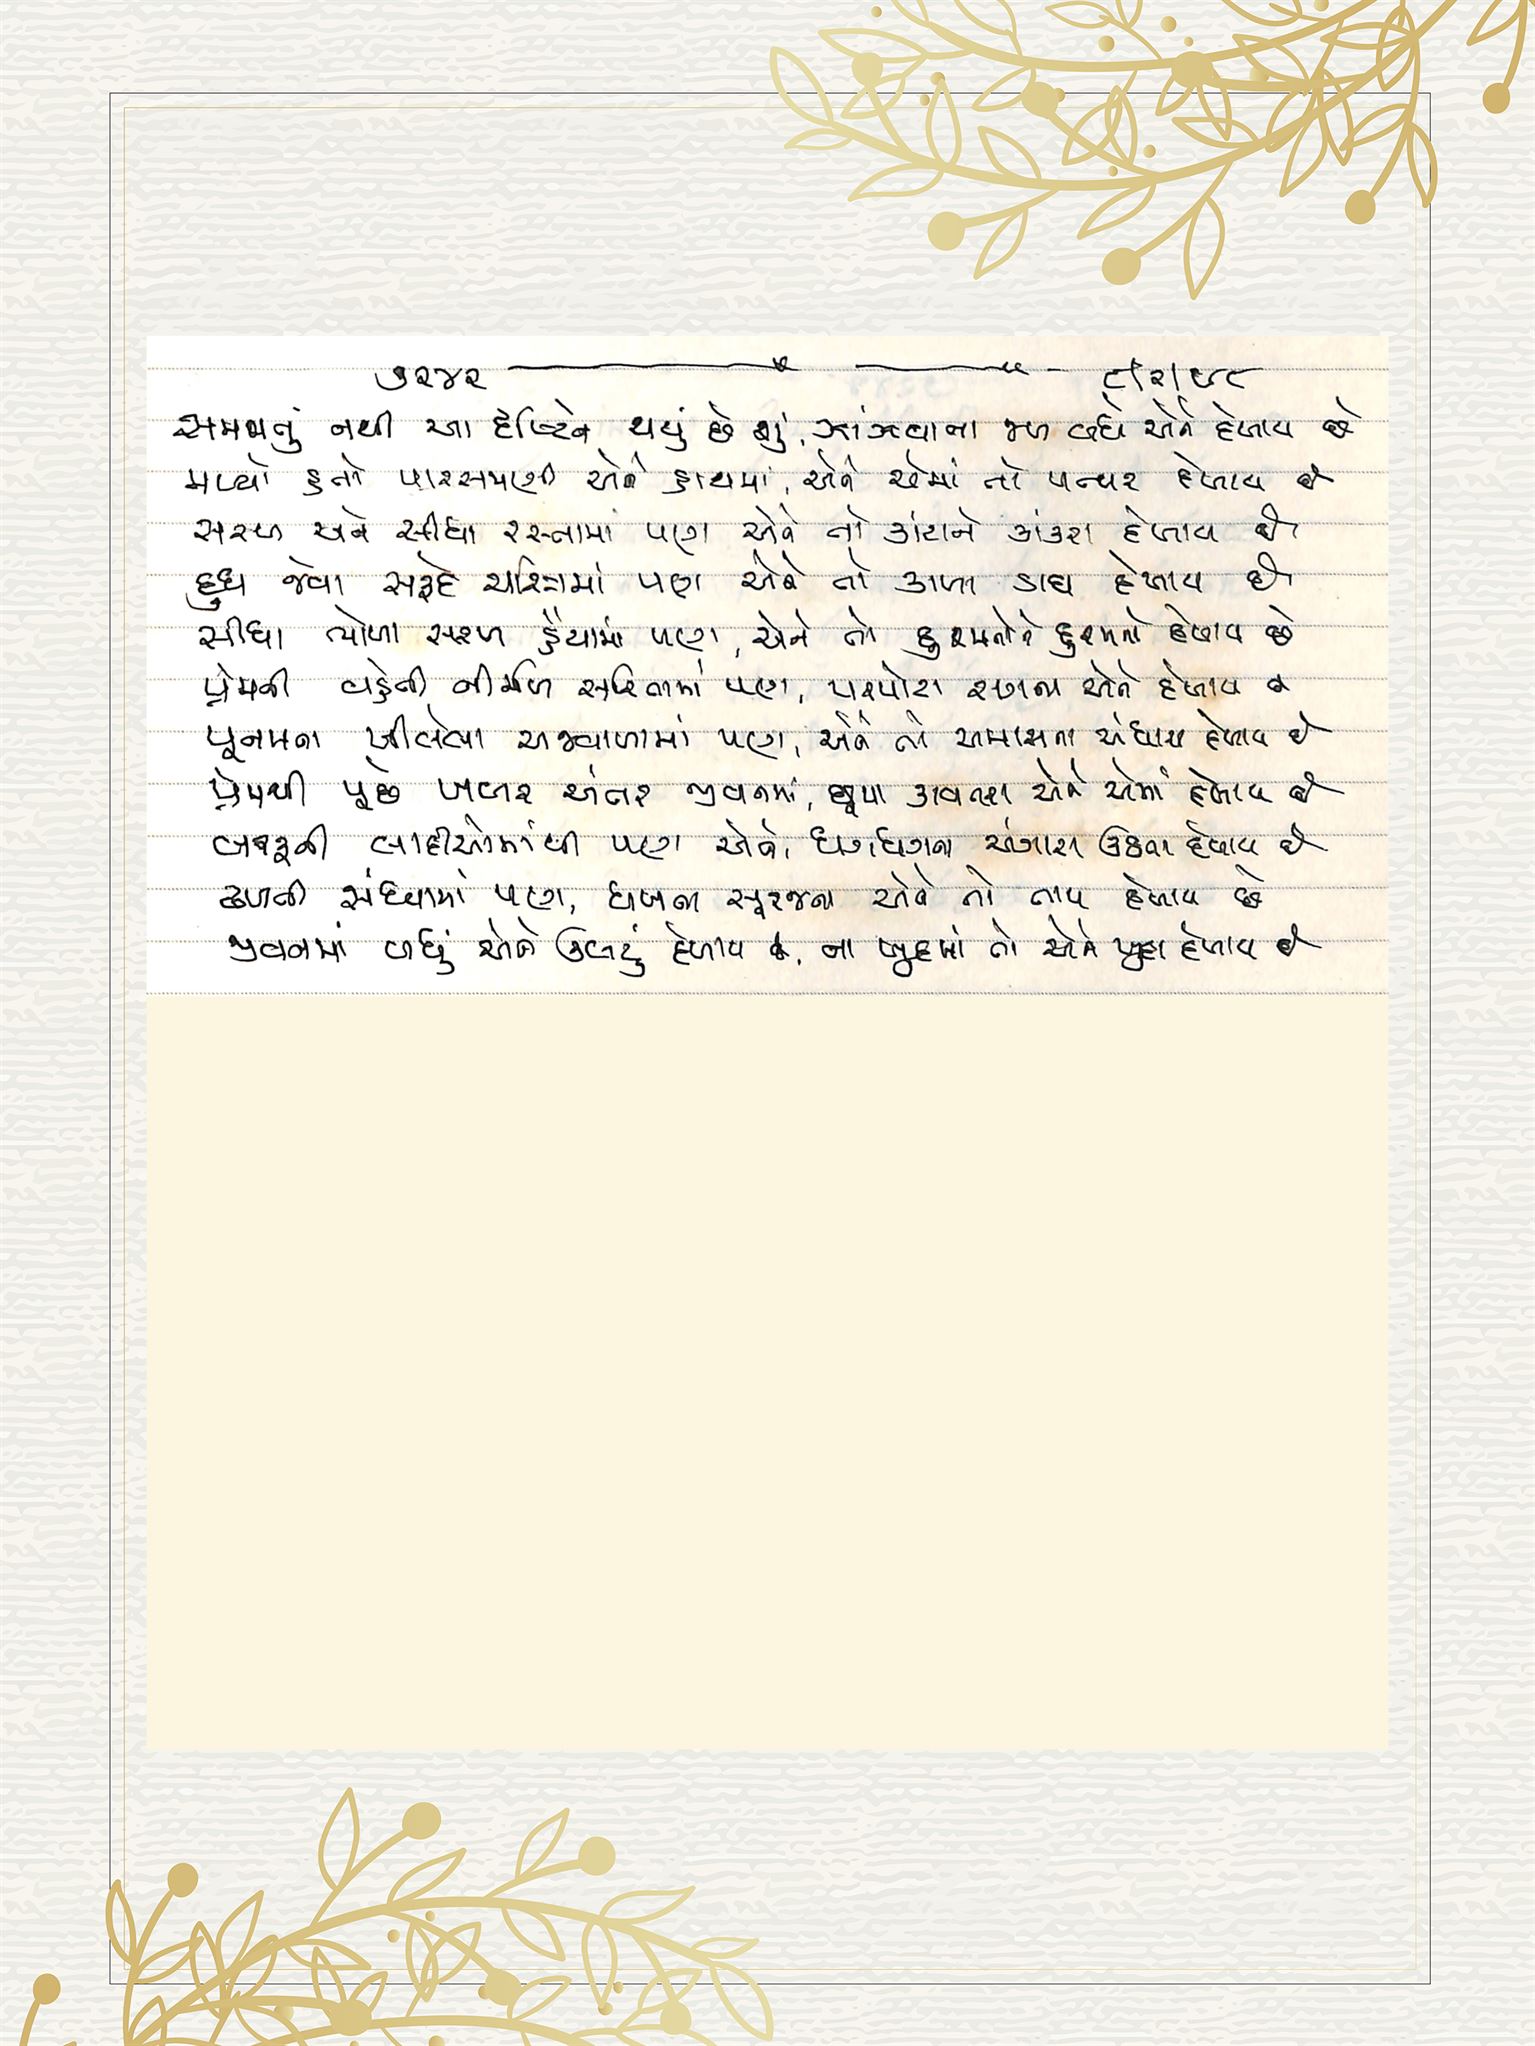 ૭૨૪૨ ૮/૨/૯૮
સમજાતું નથી આ દૃષ્ટિને થયું છે શું, ઝાંઝવાના જળ બધે એને દેખાય છે
મળ્યો હતો પારસમણી એને હાથમાં, એને એમાં તો પથ્થર દેખાય છે
સરળ અને સીધા રસ્તામાં પણ એને તો કાંટાને કાંકરા દેખાય છે
દુધ જેવા સફેદ ચરિત્રમાં પણ એને તો કાળા ડાઘ દેખાય છે
સીધા ભોળા સરળ હૈયામાં પણ, એને તો દુશ્મનોને દુશ્મનો દેખાય છે
પ્રેમની વહેતી નીર્મળ સરિતામાં પણ, પરપોટા રણના એને દેખાય છે
પૂનમના ખીલેલા અજવાળામાં પણ, એને તો અમાસના અંધારા દેખાય છે
પ્રેમથી પૂછે ખબર અંતર જીવનમાં, છૂપા કાવતરા એને એમાં દેખાય છે
બરફની લાદીઓમાંથી પણ એને, ધગધગતા અંગારા ઉઠતા દેખાય છે
ઢળતી સંધ્યામાં પણ, ધખતા સૂરજના એને તો તાપ દેખાય છે
જીવનમાં બધું એને ઉલટું દેખાય છે, ના ખુદમાં તો એને ખુદા દેખાય છે